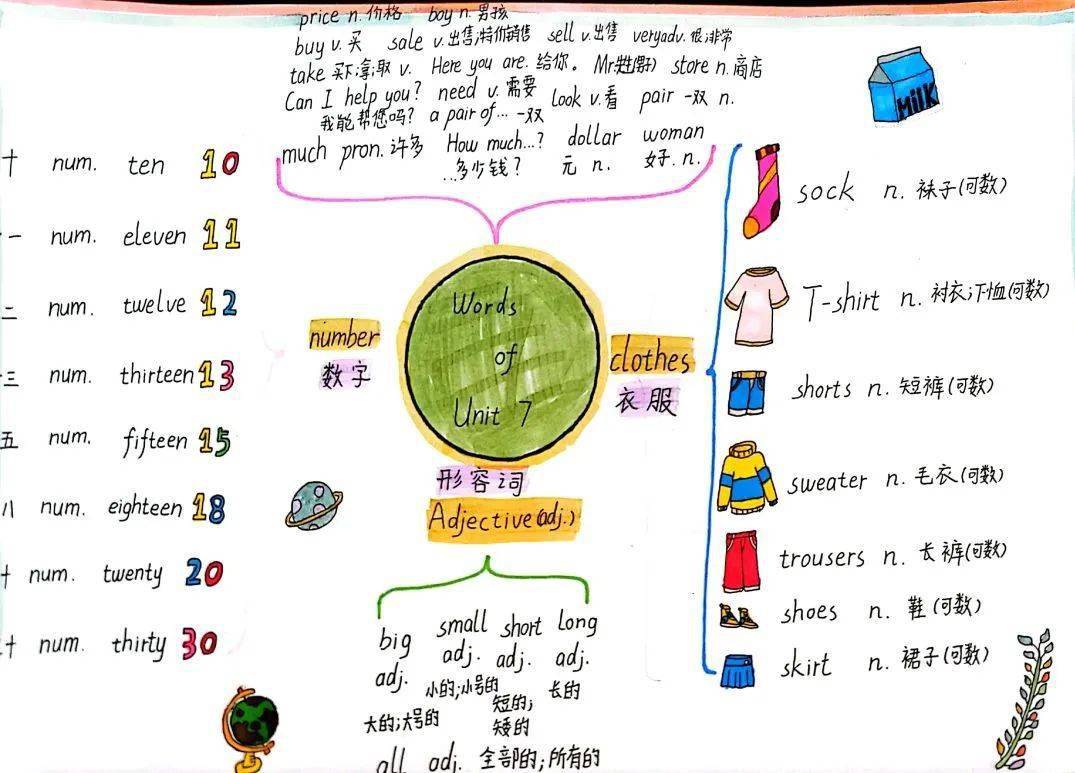 price n. 价格 boy n. 男孩
buy v. 买 sale v. 出售;特价销售 sell v. 出售 very adv. 很;非常
take 买下;拿;取 v. Here you are. 给你。 Mr. store n. 商店
Can I help you? need v. 需要 look v. 看 pair 一双 n.
我能帮您吗? a pair of... 一双
much pron. 许多 How much...? dollar woman
...多少钱? 元 n. n.
MilK
十 num. ten 10
一 num. eleven 11
二 num. twelve 12
三 num. thirteen 13
五 num. fifteen 15
八 num. eighteen 18
十 num. twenty 20
十 num. thirty 30
number
数字
Words
of
Unit 7
clothes
衣服
sock n. 袜子(可数)
T-shirt n. 衬衣;T恤(可数)
shorts n. 短裤(可数)
sweater n. 毛衣(可数)
trousers n. 长裤(可数)
shoes n. 鞋(可数)
skirt n. 裙子(可数)
形容词
Adjective(adj.)
big small short long
adj. adj. adj. adj.
大的;大号的 小的;小号的 短的;矮的 长的
all adj. 全部的;所有的